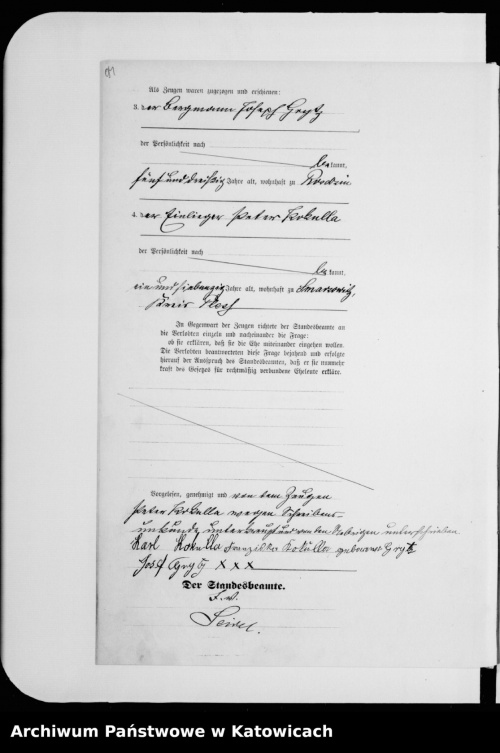 Als Zeugen waren zugezogen und erschienen:
3. der Bergmann Joseph Grytz
der Persönlichkeit nach
be kannt,
fünfunddreißig Jahre alt, wohnhaft zu Rosdzin
4. der Einlieger Peter Kokulla
der Persönlichkeit nach
be kannt,
einundsiebenzig Jahre alt, wohnhaft zu
Kreis Pless
In Gegenwart der Zeugen richtete der Standesbeamte an
die Verlobten einzeln und nacheinander die Frage:
ob sie erklären, daß sie die Ehe miteinander eingehen wollen.
Die Verlobten beantworteten diese Frage bejahend und erfolgte
hierauf der Ausspruch des Standesbeamten, daß er sie nunmehr
kraft des Gesetzes für rechtmäßig verbundene Eheleute erkläre.
Vorgelesen, genehmigt und von dem Zeugen
Peter Kokulla wegen Schreibens-
unkunde unterkreuzt und von den Uebrigen unterschrieben
Karl Kokulla Franziska Kokulla geborene Grytz
Josef Grytz XXX
Der Standesbeamte.
Seidel.
Archiwum Państwowe w Katowicach